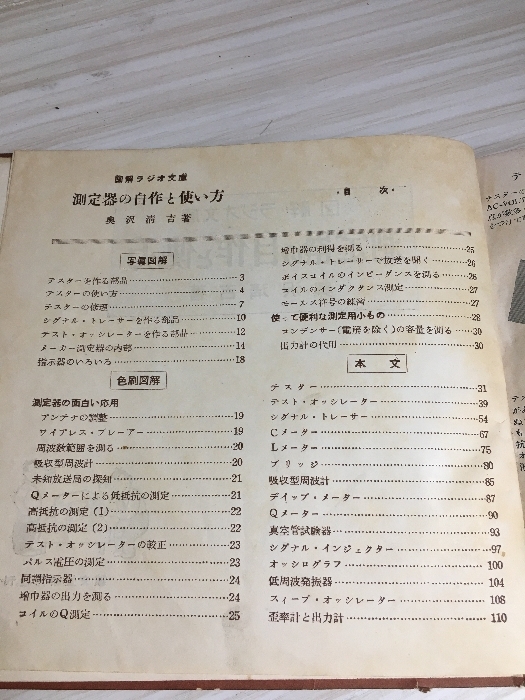 図解ラジオ文庫
測定器の自作と使い方
奥沢清吉著
・目 次・
写真図解
テスターを作る部品……3
テスターの使い方……4
テスターの修理……7
シグナル・トレーサーを作る部品……10
テスト・オッシレーターを作る部品……12
メーカー測定器の内部……14
指示器のいろいろ……18
色刷図解
測定器の面白い応用
アンテナの調整……19
ワイアレス・プレーアー……19
周波数範囲を測る……20
吸収型周波計……20
未知放送局の探知……21
Qメーターによる低抵抗の測定……21
高抵抗の測定(1)……22
高抵抗の測定(2)……22
テスト・オッシレーターの較正……23
パルス電圧の測定……23
同調指示器……24
増巾器の出力を測る……24
コイルのQ測定……25
増巾器の利得を測る……25
シグナル・トレーサーで放送を聞く……26
ボイスコイルのインピーダンスを測る……26
コイルのインダクタンス測定……27
モールス符号の練習……27
使って便利な測定用小もの……28
コンデンサー(電解を除く)の容量を測る……30
出力計の代用……30
本文
テスター……31
テスト・オッシレーター……39
シグナル・トレーサー……54
Cメーター……67
Lメーター……75
ブリッジ……80
吸収型周波計……85
ディップ・メーター……87
Qメーター……90
真空管試験器……93
シグナル・インジェクター……97
オッシログラフ……100
低周波発振器……104
スイープ・オッシレーター……108
歪率計と出力計……110